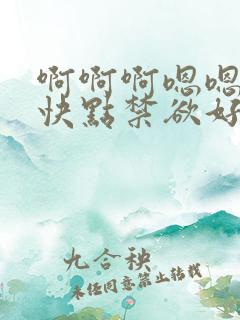 啊啊啊嗯嗯
快點禁欲好
九合秧
未任同意禁止转载